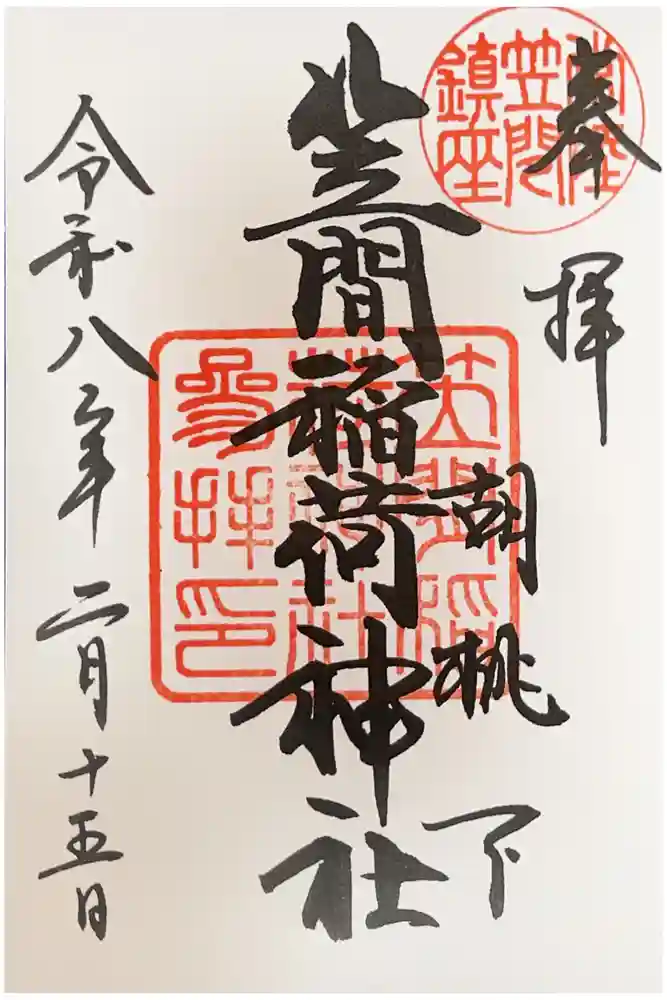 奉拝
胡桃下
笠間稲荷神社
令和八年二月十五日
常陸
笠間
鎮座
笠間稲
荷神社
参拝印